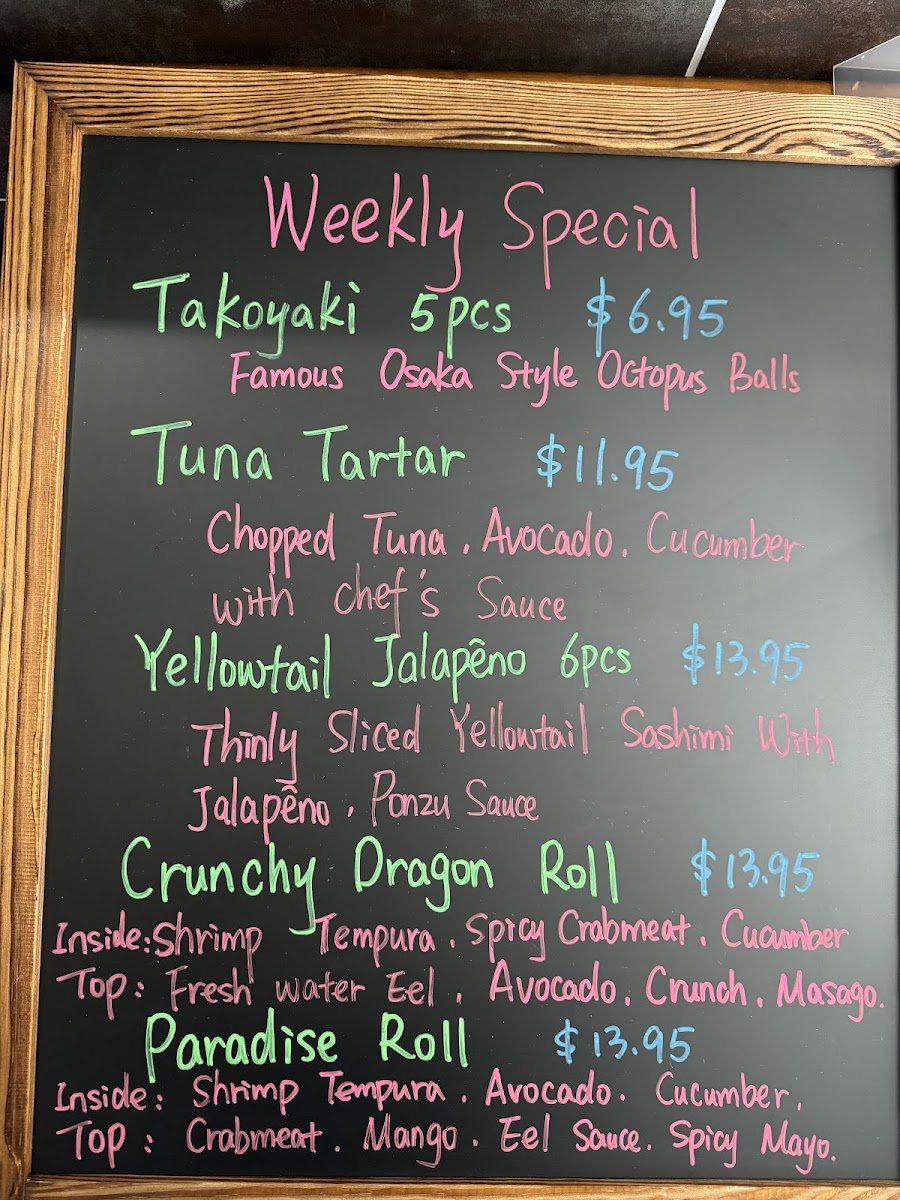 Weekly Special
Takoyaki 5pcs $6.95
Famous Osaka Style Octopus Balls
Tuna Tartar $11.95
Chopped Tuna, Avocado, Cucumber
with chef's Sauce
Yellowtail Jalapêno 6pcs $13.95
Thinly Sliced Yellowtail Sashimi With
Jalapêno, Ponzu Sauce
Crunchy Dragon Roll $13.95
Inside: Shrimp Tempura, Spicy Crabmeat, Cucumber
Top: Fresh water Eel, Avocado, Crunch, Masago.
Paradise Roll $13.95
Inside: Shrimp Tempura, Avocado, Cucumber,
Top: Crabmeat, Mango, Eel Sauce, Spicy Mayo.